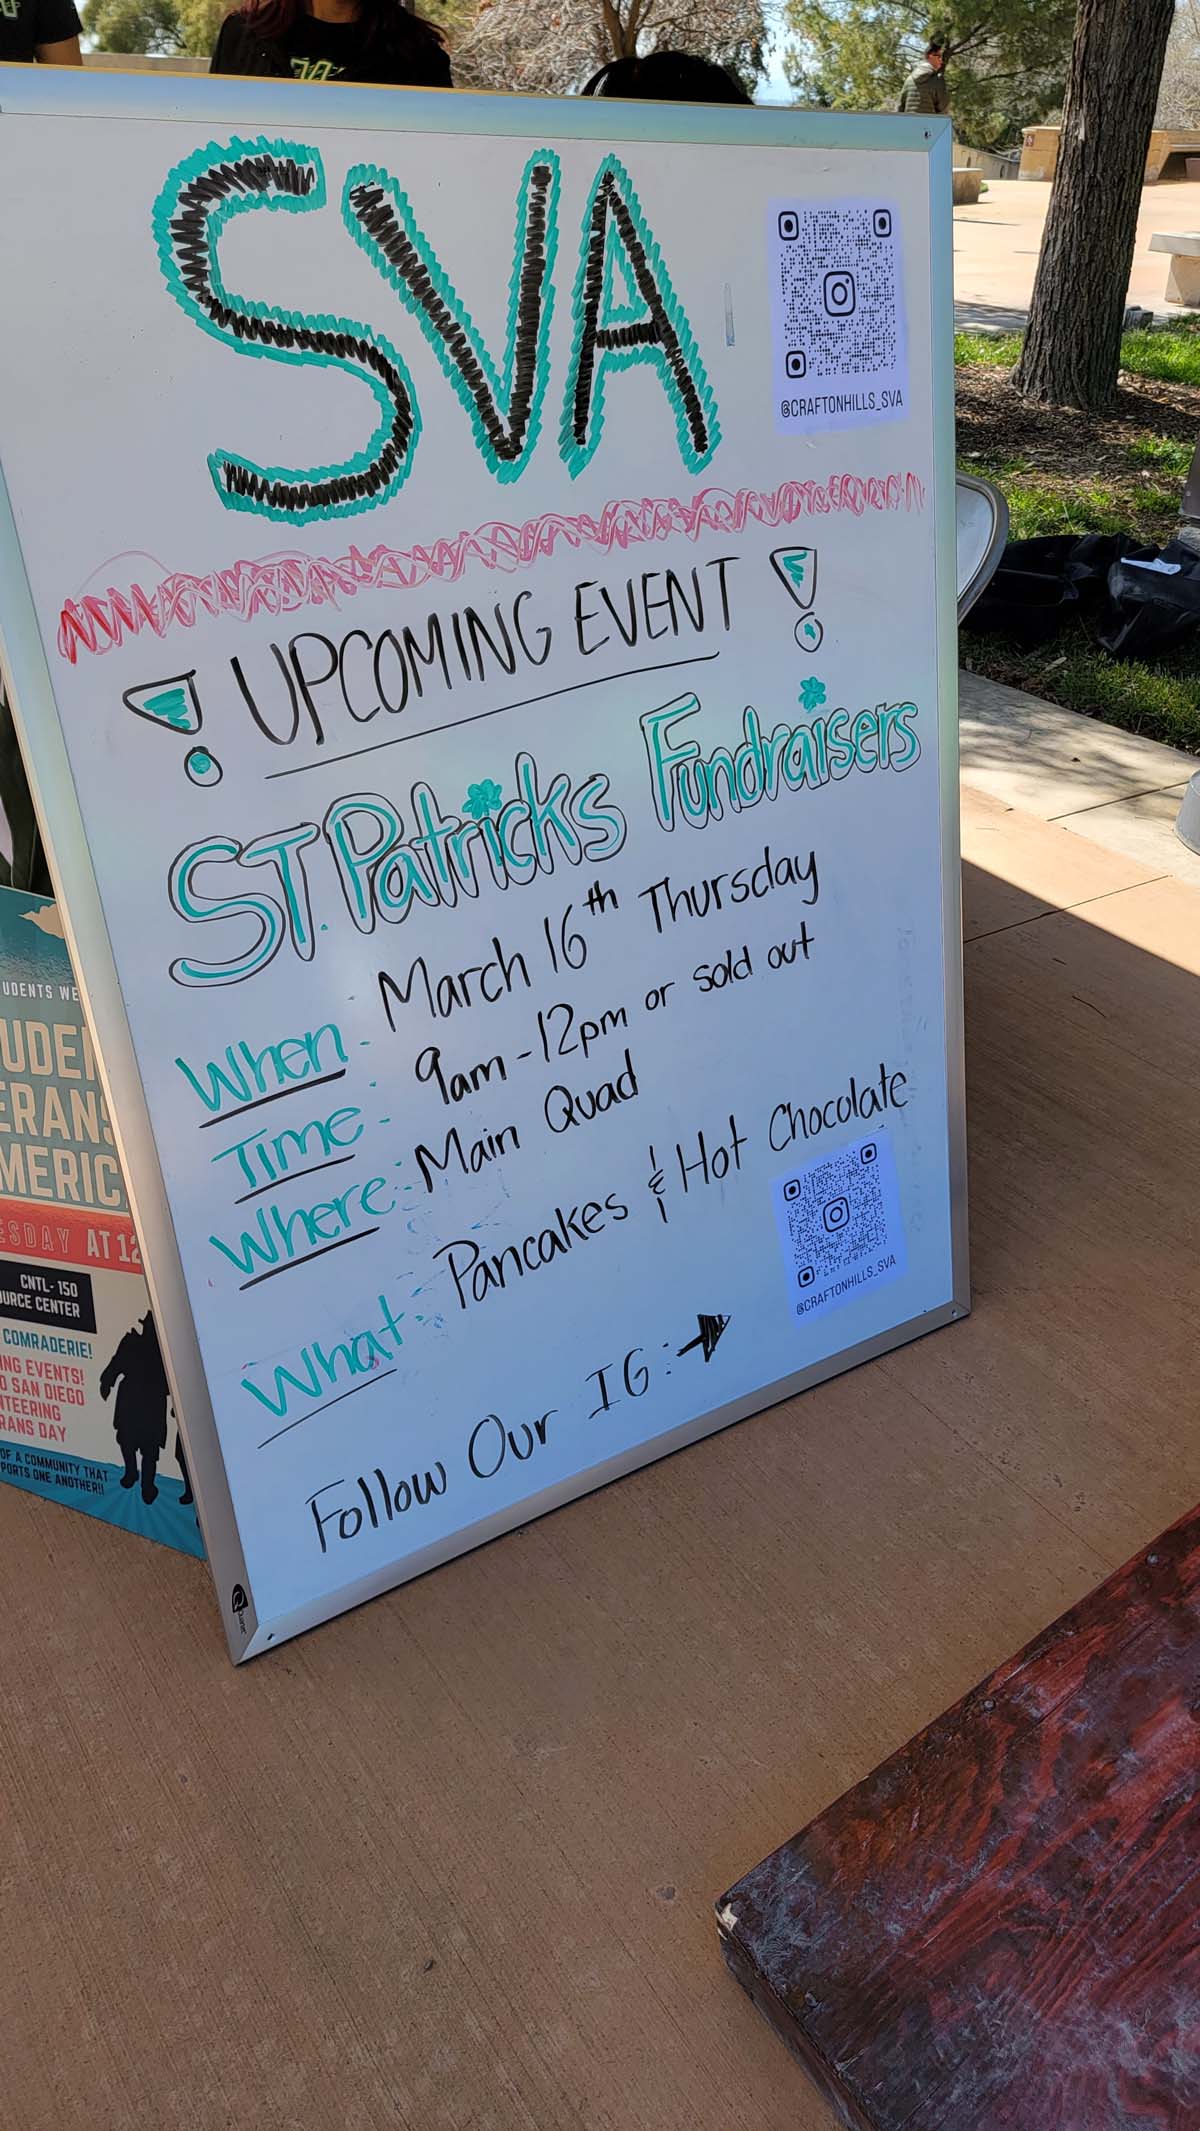 SVA
@CRAFTONHILLS_SVA
! UPCOMING EVENT !
ST. Patricks Fundraisers
When - March 16th Thursday
Time - 9am - 12pm or sold out
Where - Main Quad
What - Pancakes & Hot Chocolate
@CRAFTONHILLS_SVA
Follow Our IG:
UDENTS WE
UDEN
ERANS
MERIC
ESDAY AT 12
CNTL-150
OURCE CENTER
COMRADERIE!
ING EVENTS!
O SAN DIEGO
NTEERING
RANS DAY
OF A COMMUNITY THAT
PORTS ONE ANOTHER!!
Quartet